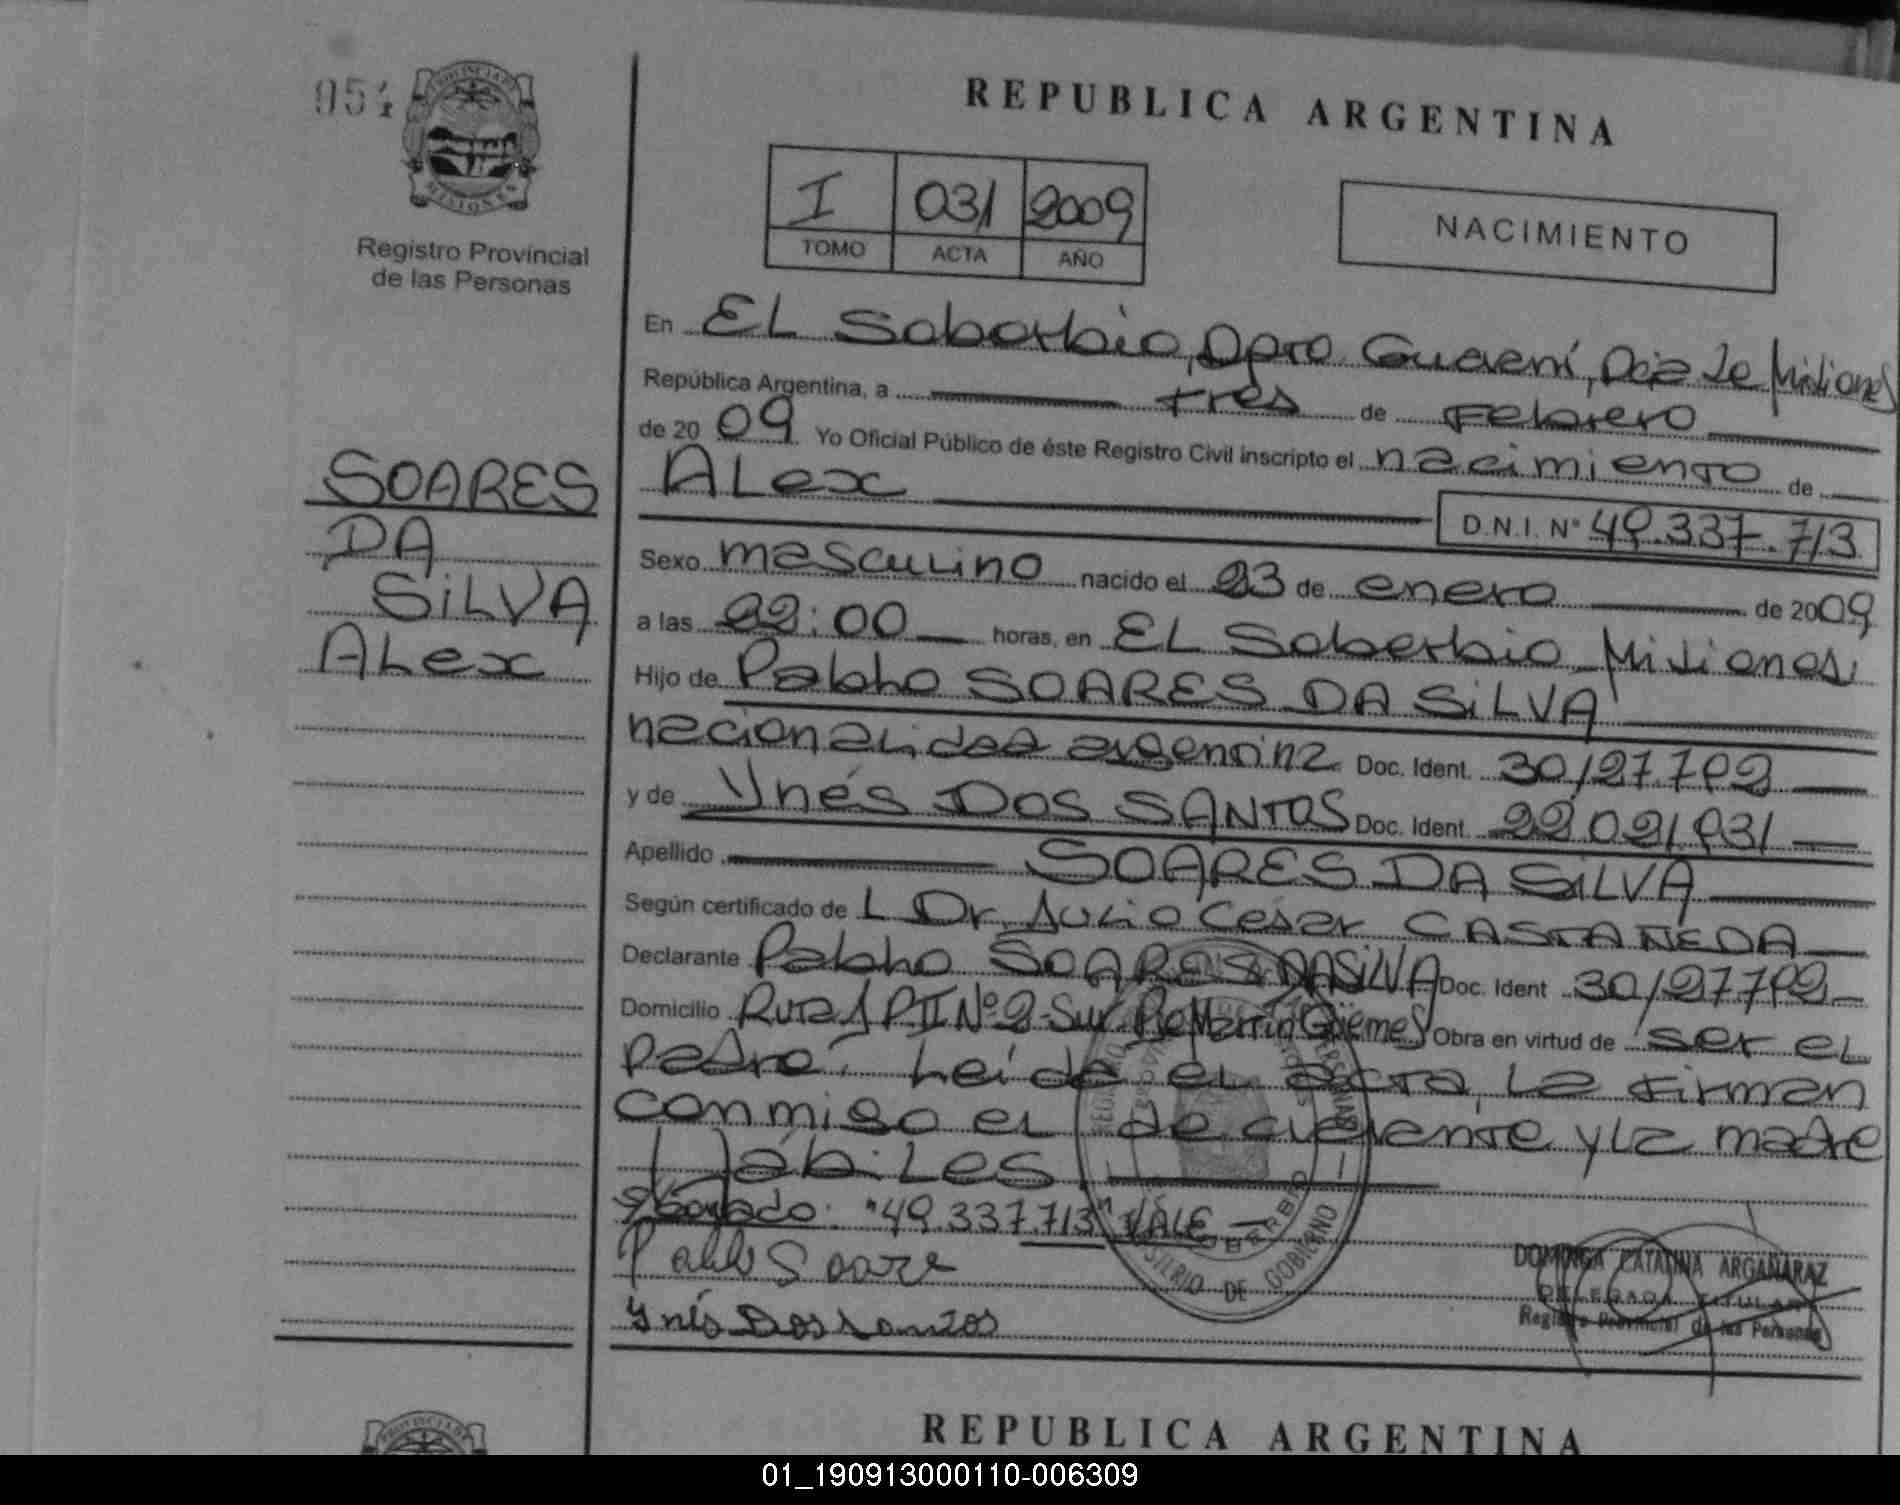 054
PROVINCIA DE
MISIONES
Registro Provincial
de las Personas
SOARES
DA
SiLVA
ALex
REPUBLICA ARGENTINA
I 031 2009
TOMO ACTA AÑO
NACIMIENTO
En EL Soberbio, Dpto. Guaraní, Pcia de Misiones
República Argentina, a tres de Febrero
de 2009 Yo Oficial Público de éste Registro Civil inscripto el nacimiento de
ALex
D.N.I. Nº 49.337.713
Sexo masculino nacido el 23 de enero de 2009
a las 22:00 horas, en EL Soberbio Misiones
Hijo de Pablo SOARES DA SiLVA
nacionalidad argentina Doc. Ident. 30127792
y de Ynés DOS SANTOS Doc. Ident. 22021931
Apellido SOARES DA SiLVA
Según certificado de L Dr. Julio Cesar CASTAÑEDA
Declarante Pablo SOARES DA SiLVA Doc. Ident 30127792
Domicilio Ruta PII Nº 2-Sur Bº Martin Güemes Obra en virtud de ser el
padre. Leída el acta, la firman
conmigo el declarante y la madre
Hábiles
49.337.713" VALE
Pablo Soare
Ynés Dos santos
MINISTERIO DE GOBIERNO
DOMINGA CATALINA ARGAÑARAZ
DELEGADA TITULAR
Registro Provincial de las Personas
PROVINCIA DE
REPUBLICA ARGENTINA
01_190913000110-006309